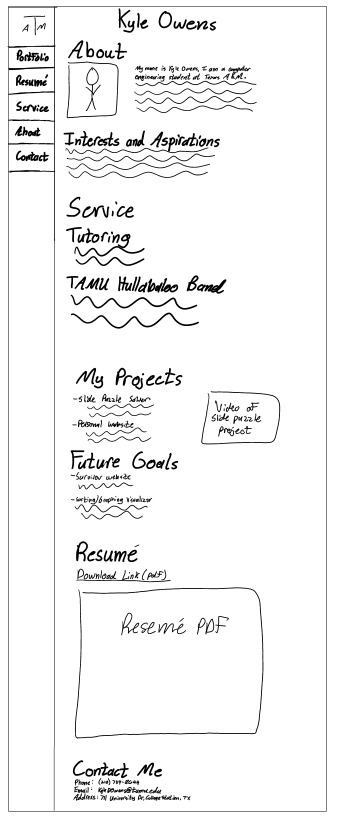 Kyle Owens
A T M
Portfolio
Resumé
Service
About
Contact
About
My name is Kyle Owens, I am a computer
engineering student at Texas A&M.
Interests and Aspirations
Service
Tutoring
TAMU Hullabaloo Band
My Projects
-Slide Puzzle Solver
-Personal website
Video of
slide puzzle
project
Future Goals
-Survivor website
-Sorting/Graphing Visualizer
Resumé
Download Link (pdf)
Resemé PDF
Contact Me
Phone:
Email:
Address: University Dr, College Station, TX